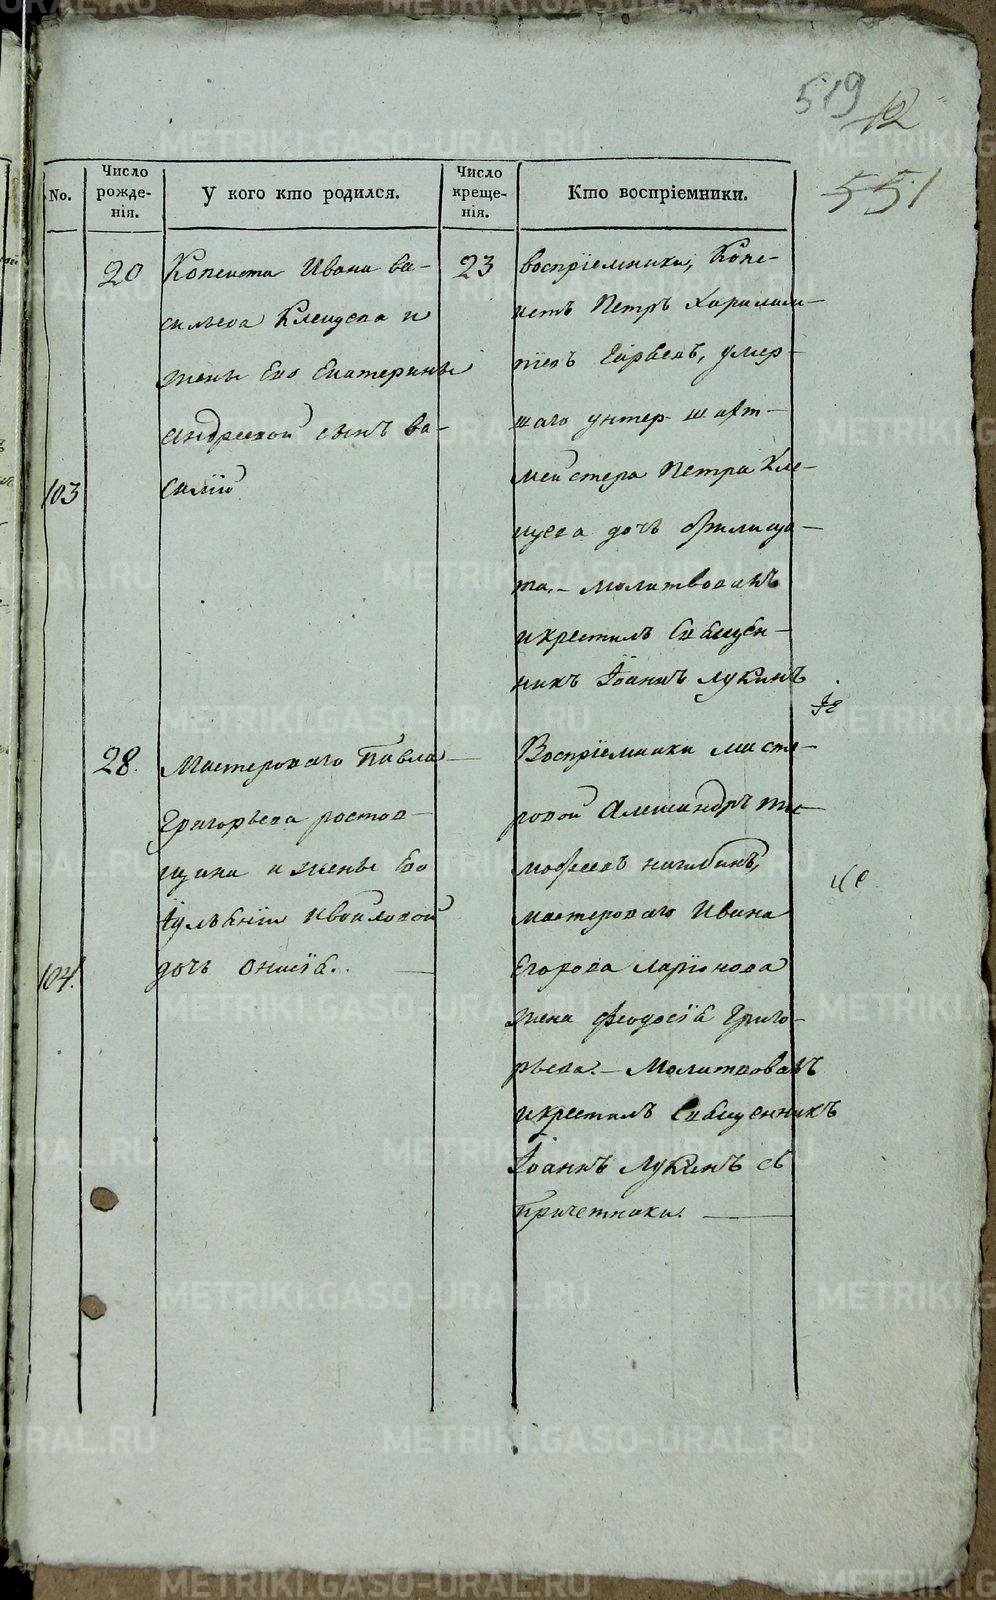 519 12
551
No.
Число рожде-нія.
У кого кто родился.
Число креще-нія.
Кто воспріемники.
103
20
Кописта Ивана ва-
сильева Клещева и
жены Его Екатерины
андреевой сынъ ва-
силій
23
воспріемники, Копе-
истъ Петръ
умер-
шаго унтер шихт-
мейстера Петра Кле-
щева дочь
та, – молитвовалъ
и крестилъ Священ-
никъ Іоаннъ Лукинъ
104.
28.
Мастероваго Павла
Григорьева ростов-
щина и жены Его
Іуліаніи
дочь Онисія..
Воспріемники масте-
ровой Александръ тим-
мастероваго Ивана
Егорова Ларіонова
жена феодосія Григо-
рьева. – Молитвовалъ
и крестилъ Священникъ
Іоаннъ Лукинъ съ
причетники.
METRIKI.GASO-URAL.RU